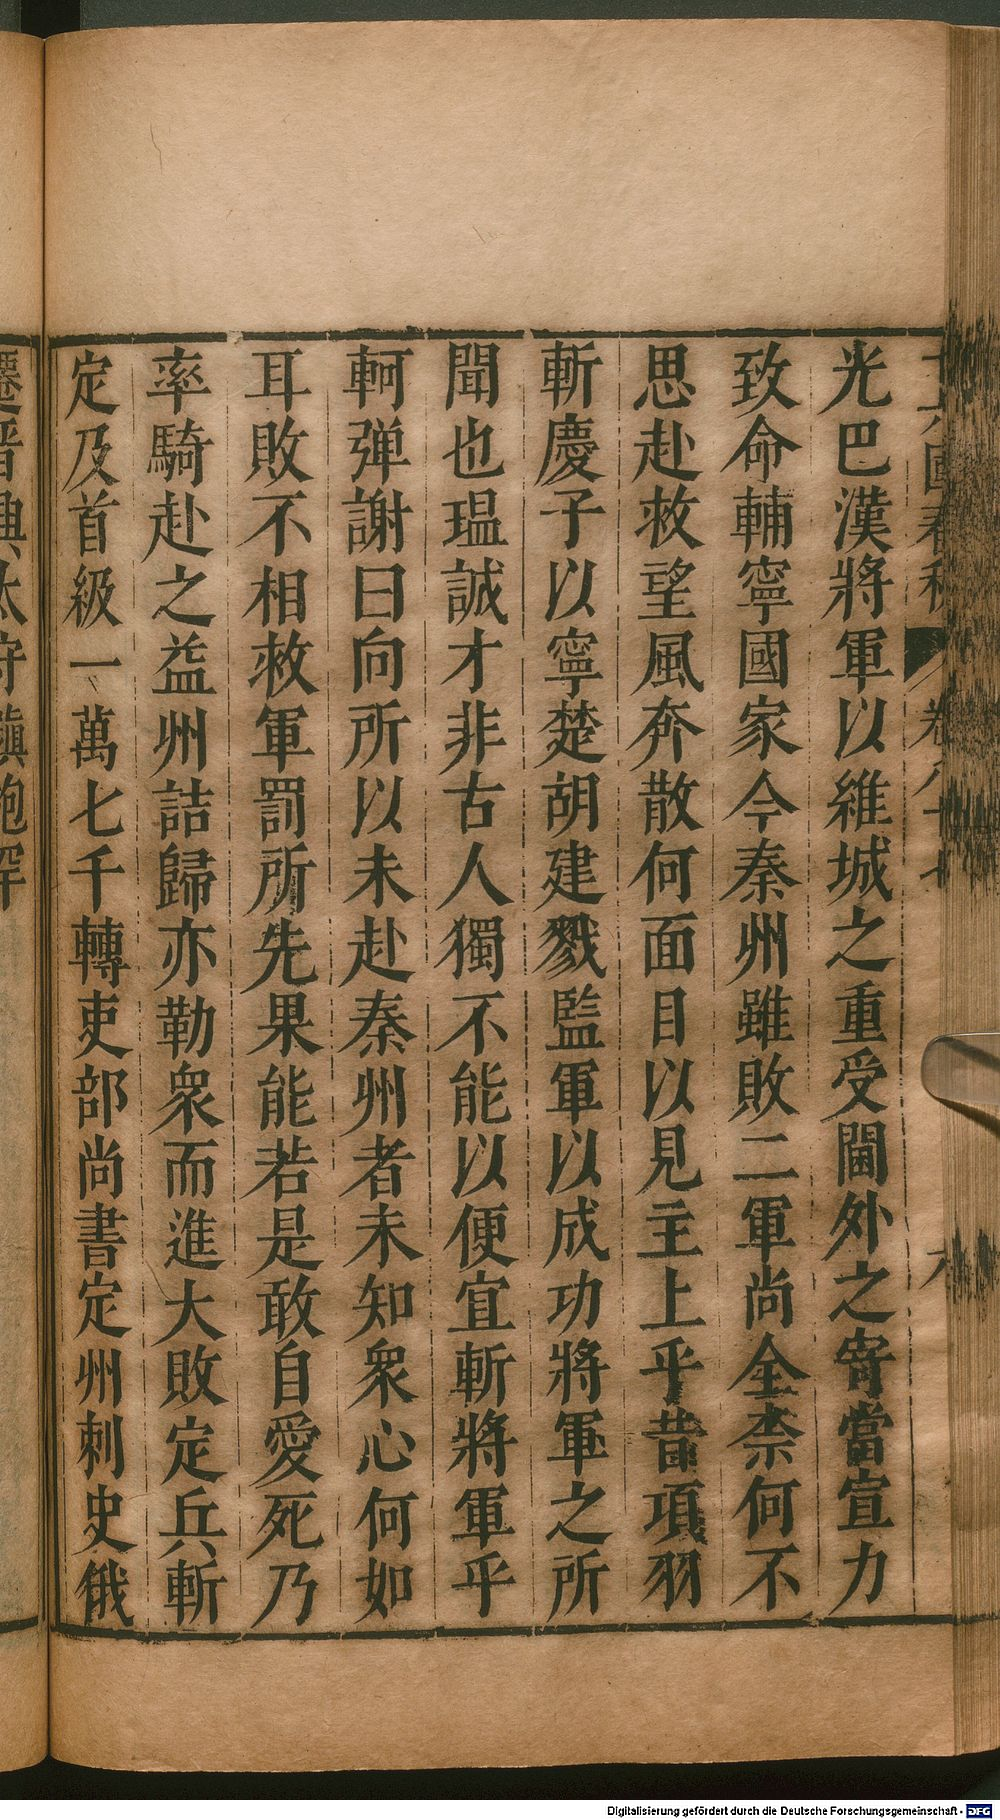 十六國春秋 卷八十七 六
光巴漢將軍以維城之重受閫外之寄當宣力
致命輔寧國家今秦州雖敗二軍尚全柰何不
思赴救望風奔散何面目以見主上乎昔項羽
斬慶子以寧楚胡建戮監軍以成功將軍之所
聞也瑥誠才非古人獨不能以便宜斬將軍乎
軻彈謝曰向所以未赴秦州者未知衆心何如
耳敗不相救軍罰所先果能若是敢自愛死乃
率騎赴之益州詰歸亦勒衆而進大敗定兵斬
定及首級一萬七千轉吏部尚書定州刺史俄
遷晉典太守鎮枹罕
Digitalisierung gefördert durch die Deutsche Forschungsgemeinschaft - DFG